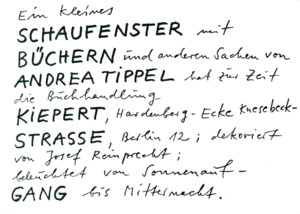 Ein kleines
SCHAUFENSTER mit
BÜCHERN und anderen Sachen von
ANDREA TIPPEL hat zur Zeit
die Buchhandlung
KIEPERT, Hardenberg-Ecke Knesebeck-
STRASSE, Berlin 12; dekoriert
von Josef Reinprecht;
beleuchtet von Sonnenauf-
GANG bis Mitternacht.